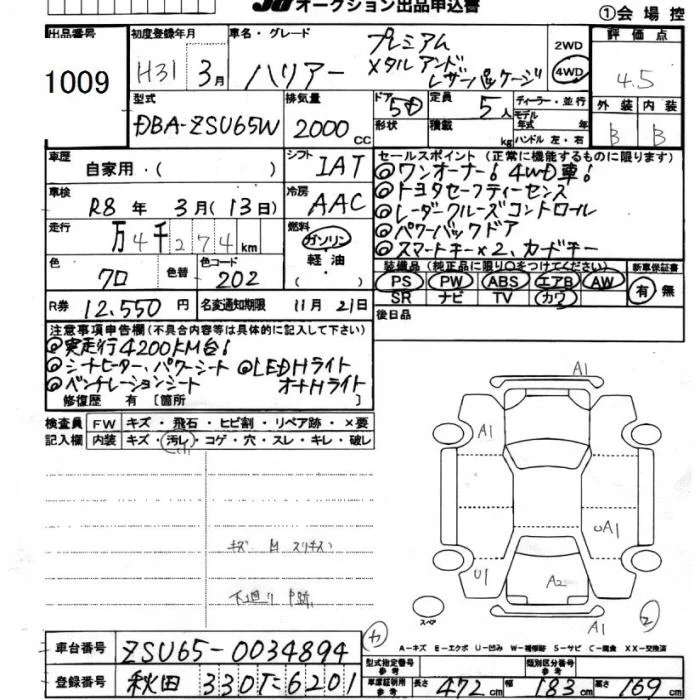 オークション出品申込書
①会場控
出品番号
1009
初度登録年月
H31年 3月
車名・グレード
ハリアー
プレミアム
メタル アンド
レザーパッケージ
2WD
4WD
評価点
4.5
外装 内装
B B
型式
DBA-ZSU65W
排気量
2000cc
ドア
5D
形状
定員
5人
積載
kg
ディーラー・並行
モデル年式 年
ハンドル 左・右
車歴
自家用・( )
シフト
IAT
車検
R8年 3月(13日)
冷房
AAC
走行
万4千274km
燃料
ガソリン
軽油
( )
色
クロ
色替
色コード
202
R券
12,550円
名変通知期限
11月21日
セールスポイント(正常に機能するものに限ります)
◎ワンオーナー! 4WD車!
◎トヨタセーフティーセンス
◎レーダークルーズコントロール
◎パワーバックドア
◎スマートキー×2、カードキー
装備品(純正品に限り○をつけてください)
PS PW ABS エアB AW
SR ナビ TV カワ
新車保証書
有 無
後日品
注意事項申告欄(不具合内容等は具体的に記入して下さい)
◎実走行4200KM台!
◎シートヒーター、パワーシート ◎LEDHライト
◎ベンチレーションシート オートHライト
修復歴 有 [箇所 ]
検査員記入欄
FW キズ・飛石・ヒビ割・リペア跡・×要
内装 キズ・汚レ・コゲ・穴・スレ・キレ・破レ
キズ M スリキズ
下廻り
A1
A1
UA1
U1
A2
A1
スペア
2
A-キズ E-エクボ U-凹み W-補修跡 S-サビ C-腐食 XX-交換済
車台番号
ZSU65-0034894
カ
登録番号
秋田 330 て 6201
型式指定番号 参考
類別区分番号 参考
車庫証明用 参考
長さ 472cm 幅 183cm 高さ 169cm